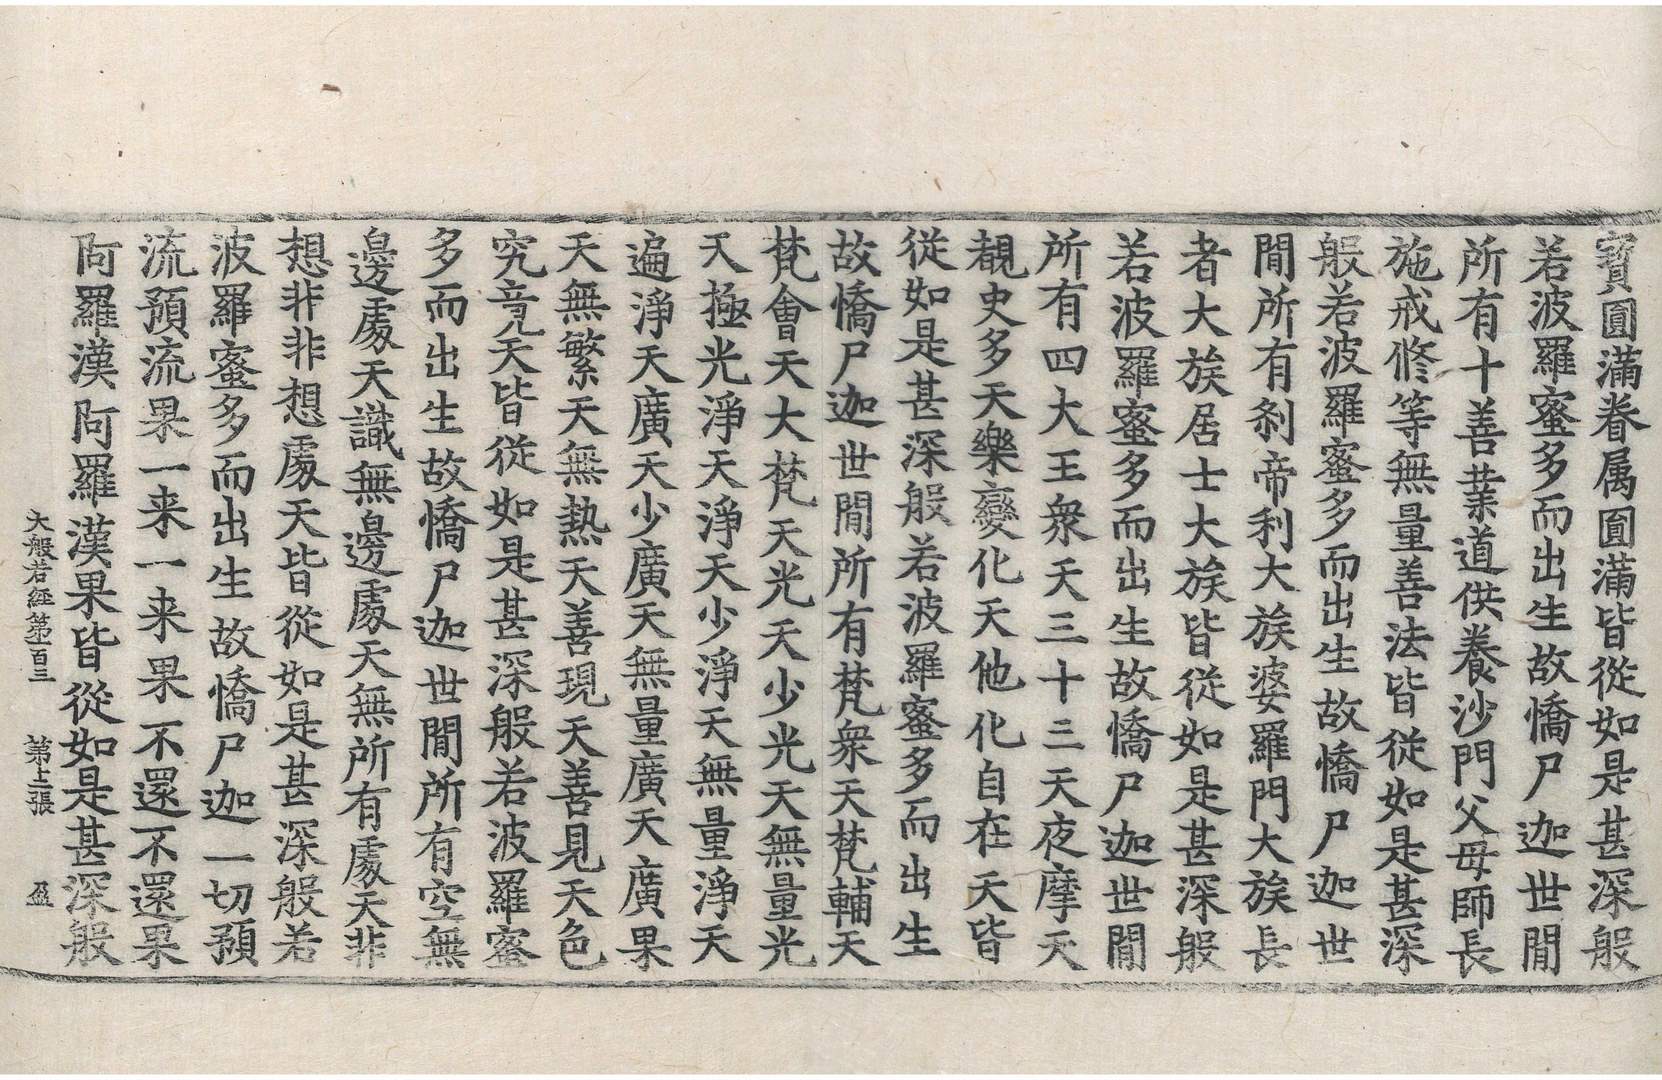 寳圓滿眷属圓滿皆從如是甚深般
若波羅蜜多而出生故憍尸迦世間
所有十善業道供養沙門父母師長
施戒修等無量善法皆從如是甚深
般若波羅蜜多而出生故憍尸迦世
間所有剎帝利大族婆羅門大族長
者大族居士大族皆從如是甚深般
若波羅蜜多而出生故憍尸迦世間
所有四大王衆天三十三天夜摩天
覩史多天樂變化天他化自在天皆
從如是甚深般若波羅蜜多而出生
故憍尸迦世間所有梵衆天梵輔天
梵會天大梵天光天少光天無量光
天極光淨天淨天少淨天無量淨天
遍淨天廣天少廣天無量廣天廣果
天無繁天無熱天善現天善見天色
究竟天皆從如是甚深般若波羅蜜
多而出生故憍尸迦世間所有空無
邊處天識無邊處天無所有處天非
想非非想處天皆從如是甚深般若
波羅蜜多而出生故憍尸迦一切預
流預流果一来一来果不還不還果
阿羅漢阿羅漢果皆從如是甚深般
大般若經第一百三 第上張 盈